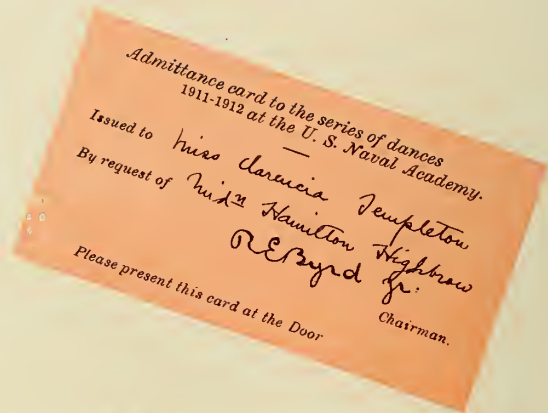 Admittance card to the series of dances
1911-1912 at the U. S. Naval Academy.
Issued to Miss Clarencia Templeton
By request of Midn Hamilton Highbrow
R.E. Byrd Jr.
Chairman.
Please present this card at the Door